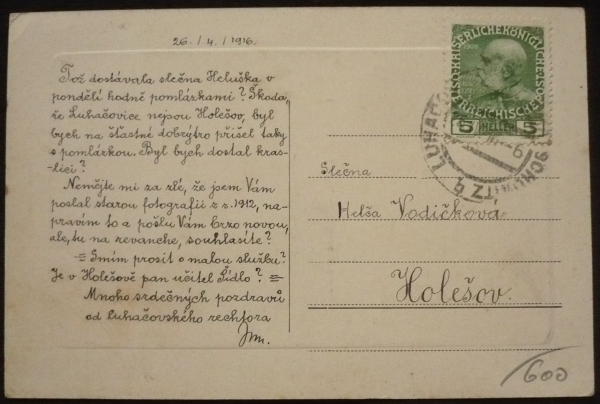 26./4./1916.
Tož dostávala slečna Heluška v
pondělí hodně pomlázkami? Škoda,
že Luhačovice nejsou Holešov, byl
bych na šťastné dobrýtro přišel taky
s pomlázkou. Byl bych dostal kras-
lici?
Nemějte mi za zlé, že jsem Vám
poslal starou fotografii z r. 1912, na-
pravím to a pošlu Vám brzo novou,
ale, tu na revanche, souhlasíte?
= Smím prosit o malou službu?
Je v Holešově pan učitel Šídlo? =
Mnoho srdečných pozdravů
od Luhačovského rechtora
KAISERLICHE KÖNIGLICHE
ÖSTERREICHISCHE
5 HELLER 5
Slečna
Helša Vodičková
Holešov.
600